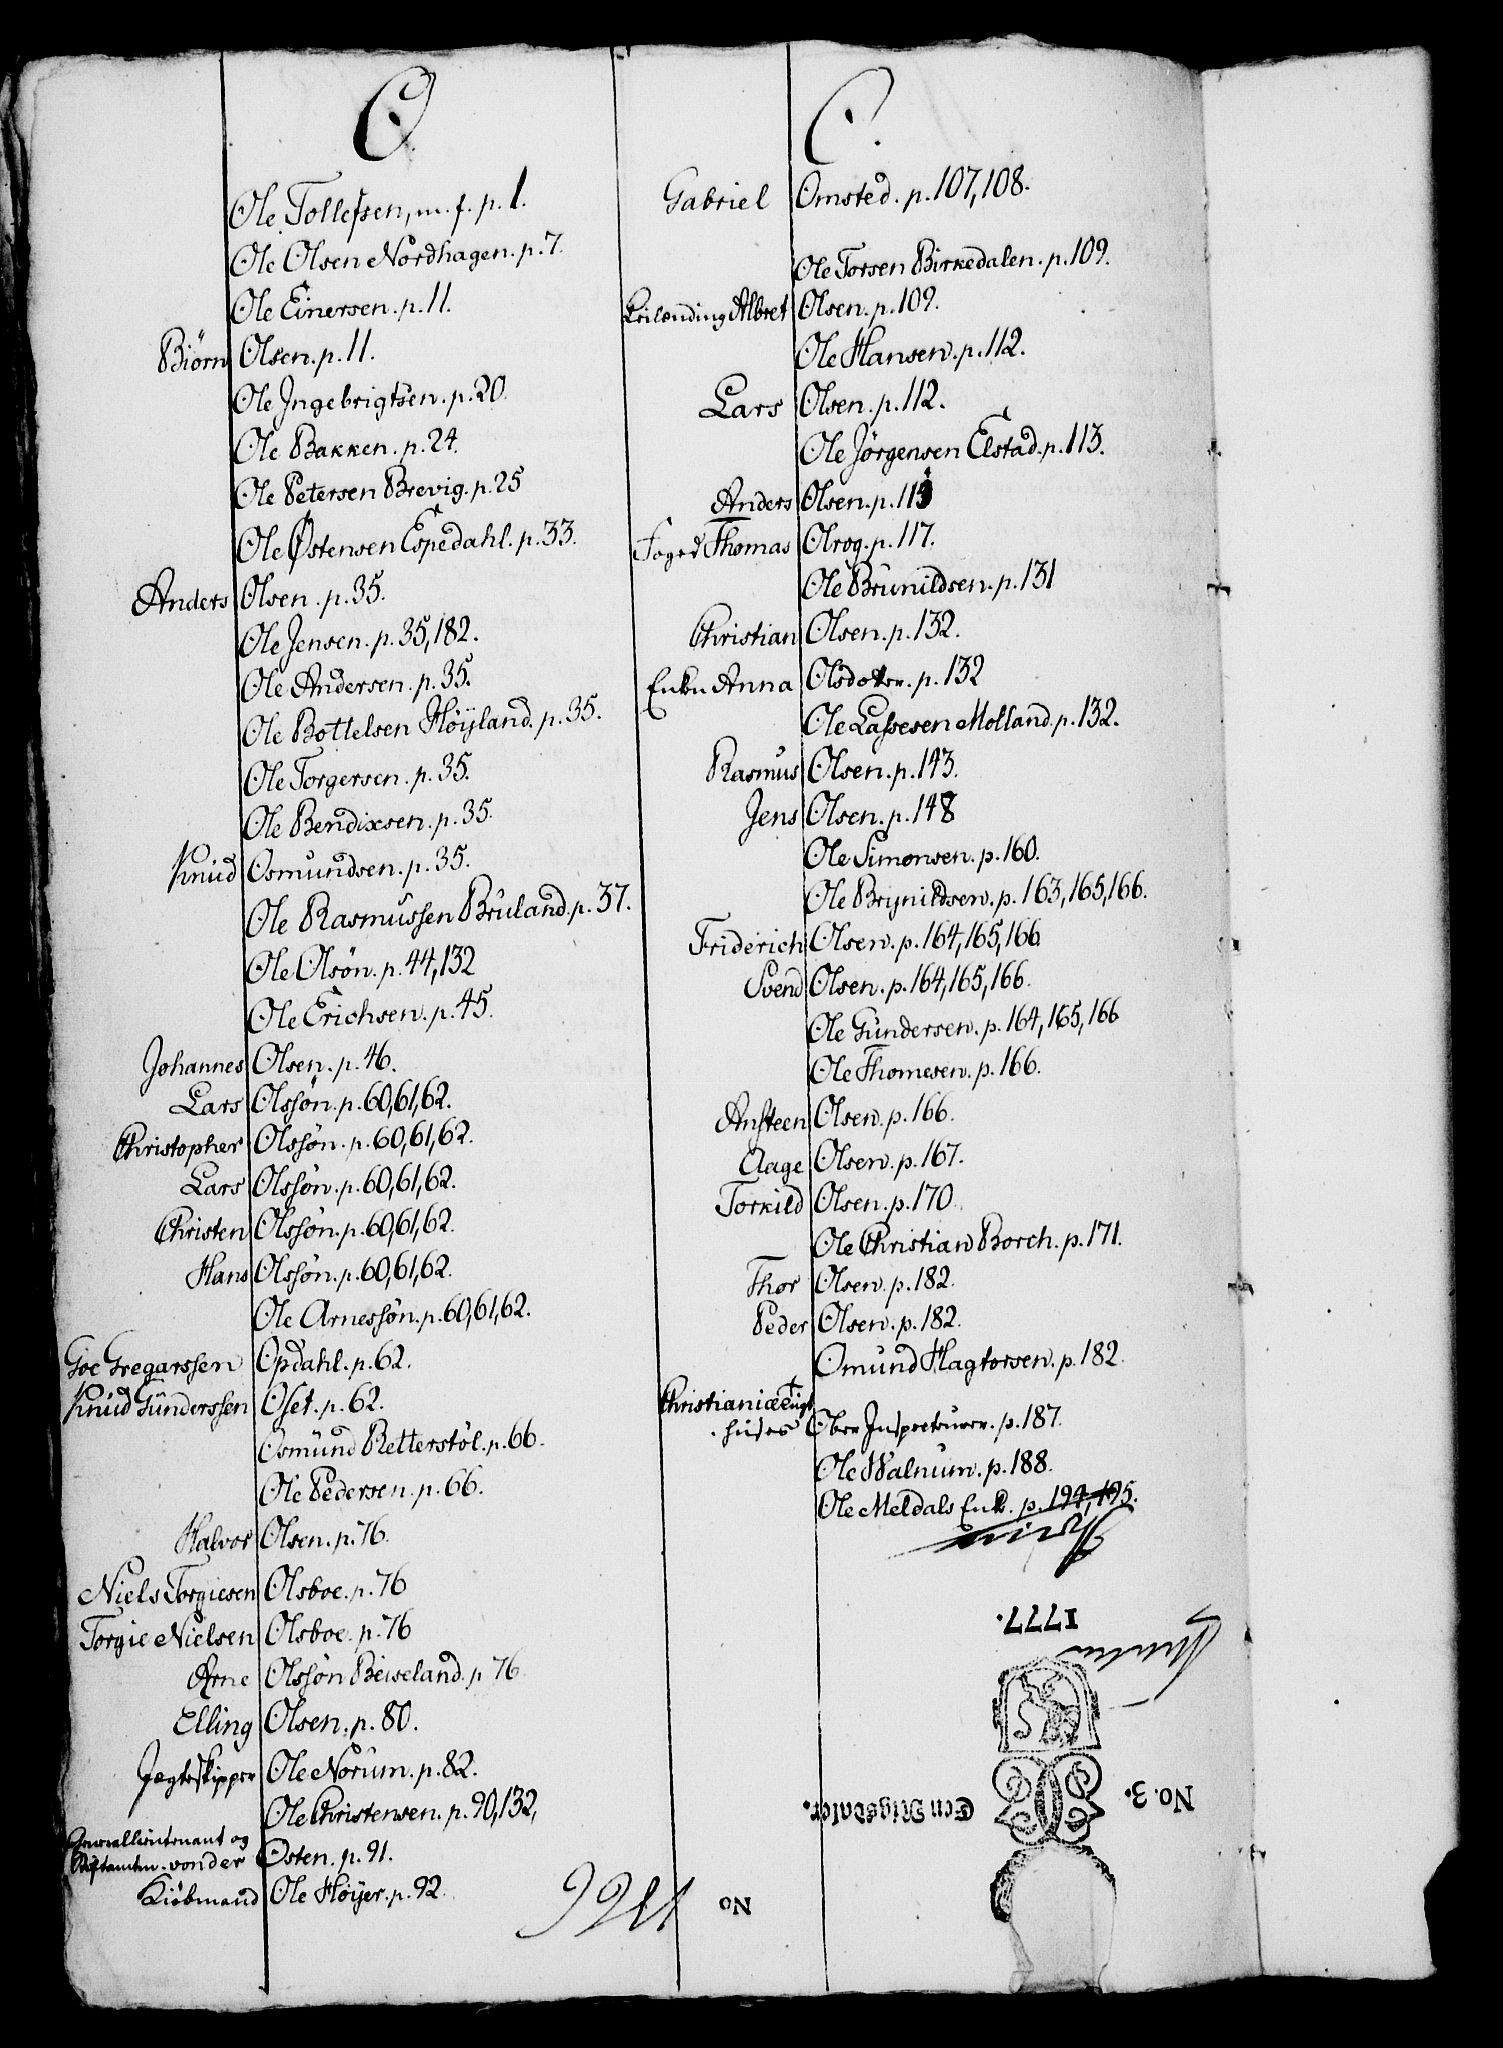 O.
Ole Tollefsen, m. f. p. 1.
Ole Olsen Nordhagen. p. 7.
Ole Einersen. p. 11.
Biörn Olsen. p. 11.
Ole Ingebrigtsen. p. 20.
Ole Bakken. p. 24.
Ole Petersen Brevig. p. 25
Ole Østensen Espedahl. p. 33.
Anders Olsen. p. 35.
Ole Jensen. p. 35, 182.
Ole Andersen. p. 35.
Ole Bottelsen Höÿland. p. 35.
Ole Torgersen. p. 35.
Ole Bendixsen. p. 35.
Knud Osmundsen. p. 35.
Ole Rasmussen Bruland. p. 37.
Ole Olsön. p. 44, 132
Ole Erichsen. p. 45.
Johannes Olsen. p. 46.
Lars Olssön. p. 60, 61, 62.
Christopher Olssön. p. 60, 61, 62.
Lars Olssön. p. 60, 61, 62.
Christen Olssön. p. 60, 61, 62.
Hans Olssön. p. 60, 61, 62.
Ole Arnessön. p. 60, 61, 62.
Goe Gregarssen Opdahl. p. 62.
Knud Gunderssen Oset. p. 62.
Osmund Retterstöl. p. 66.
Ole Pedersen. p. 66.
Halvor Olsen. p. 76.
Niels Torgiesen Olsboe. p. 76
Torgie Nielsen Olsboe. p. 76
Arne Olssön Beiseland. p 76.
Elling Olsen. p. 80.
Jægteskipper Ole Norum. p. 82.
Ole Christensen. p. 90, 132,
Generallieutenant og
Stiftamtm. von der Osten. p. 91.
Kiöbmand Ole Höÿer. p. 92.
O.
Gabriel Omsted. p. 107, 108.
Ole Torsen Birkedalen. p. 109.
Albret Olsen. p. 109.
Ole Hansen. p. 112.
Lars Olsen. p. 112.
Ole Jörgensen Elstad. p. 113.
Anders Olsen. p. 115
Foged Thomas Olrog. p. 117.
Ole Brunildsen. p. 131
Christian Olsen. p. 132.
Enken Anna Olsdotter. p. 132
Ole Lassesen Molland. p. 132.
Rasmus Olsen. p. 143.
Jens Olsen. p. 148
Ole Simonsen. p. 160.
Ole Brynildsen. p. 163, 165, 166.
Friderich Olsen. p. 164, 165, 166.
Svend Olsen. p. 164, 165, 166.
Ole Gundersen. p. 164, 165, 166
Ole Thomesen. p. 166.
Ansteen Olsen. p. 166.
Aage Olsen. p. 167.
Torkild Olsen. p. 170.
Ole Christian Borch. p. 171.
Thor Olsen. p. 182.
Peder Olsen. p. 182.
Omund Hagtorsen. p. 182.
Christianiæ Tugt
huses Ober Inspecteurer. p. 187.
Ole Walnum. p. 188.
Ole Meldals Enke. p. 194, 195.
1777.
No. 3.
Een Rigsdaler.
No